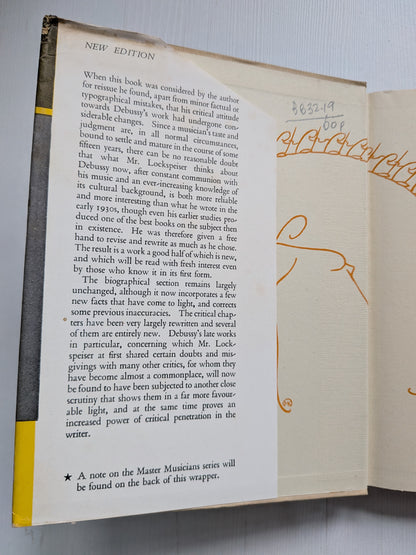 NEW EDITION
When this book was considered by the author
for reissue he found, apart from minor factual or
typographical mistakes, that his critical attitude
towards Debussy's work had undergone con-
siderable changes. Since a musician's taste and
judgment are, in all normal circumstances,
bound to settle and mature in the course of some
fifteen years, there can be no reasonable doubt
that what Mr. Lockspeiser thinks about
Debussy now, after constant communion with
his music and an ever-increasing knowledge of
its cultural background, is both more reliable
and more interesting than what he wrote in the
early 1930s, though even his earlier studies pro-
duced one of the best books on the subject then
in existence. He was therefore given a free
hand to revise and rewrite as much as he chose.
The result is a work a good half of which is new,
and which will be read with fresh interest even
by those who know it in its first form.
The biographical section remains largely
unchanged, although it now incorporates a few
new facts that have come to light, and corrects
some previous inaccuracies. The critical chap-
ters have been very largely rewritten and several
of them are entirely new. Debussy's late works
in particular, concerning which Mr. Lock-
speiser at first shared certain doubts and mis-
givings with many other critics, for whom they
have become almost a commonplace, will now
be found to have been subjected to another close
scrutiny that shows them in a far more favour-
able light, and at the same time proves an
increased power of critical penetration in the
writer.
★ A note on the Master Musicians series will
be found on the back of this wrapper.